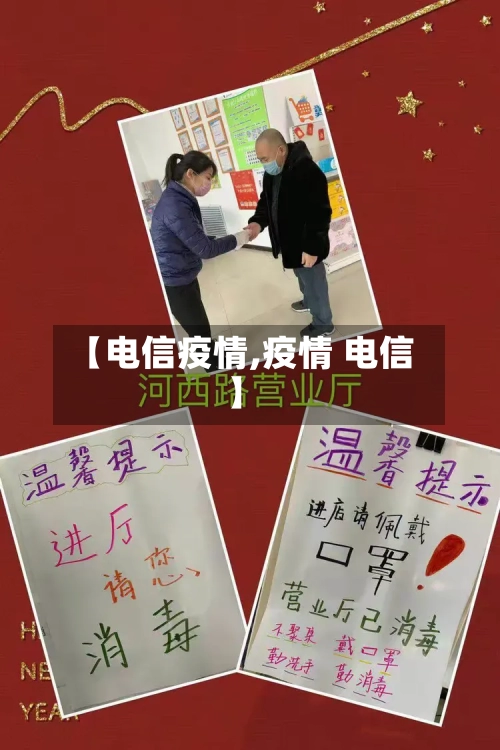 【电信疫情,疫情 电信
】
河西路营业厅
温馨提示
进厅
请您
消毒
温馨提示
进店请佩戴
口罩！
营业厅已消毒
不聚集 戴口罩
勤洗手 勤消毒
NE
YEA